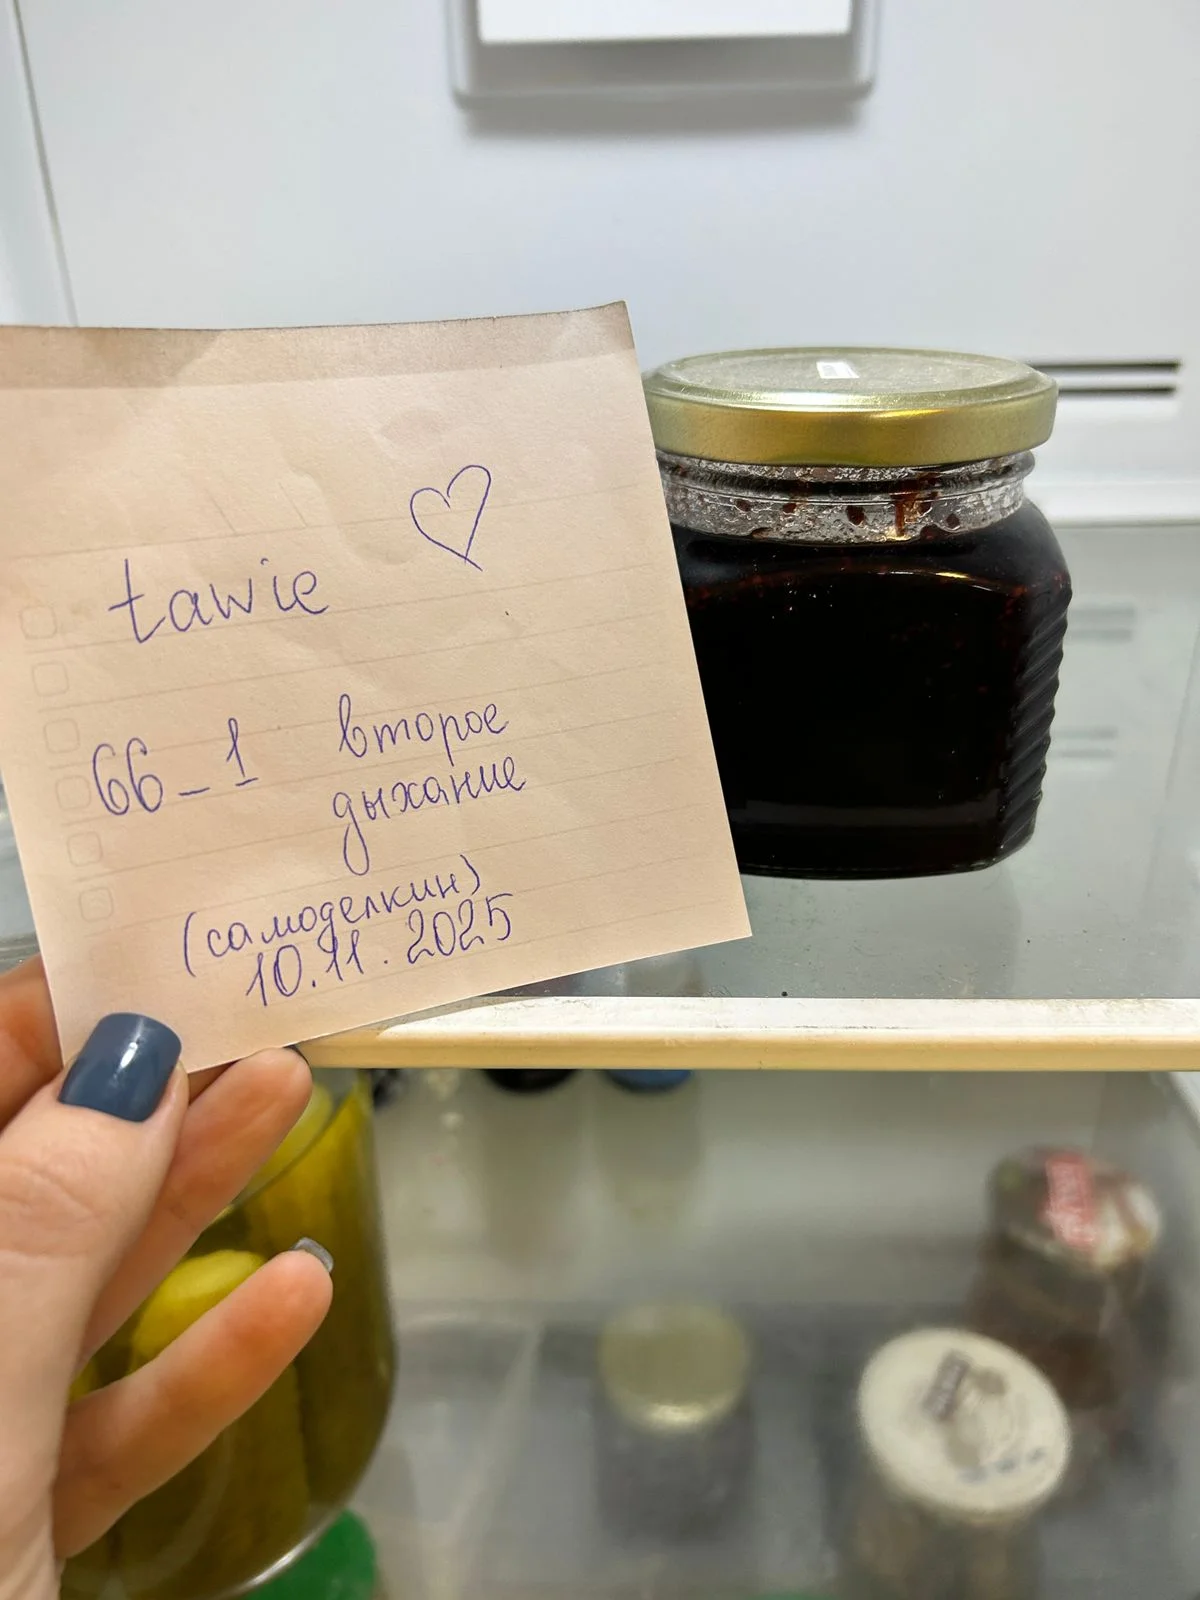 tawie
66-1 второе
дыхание
(самоделкин)
10.11.2025